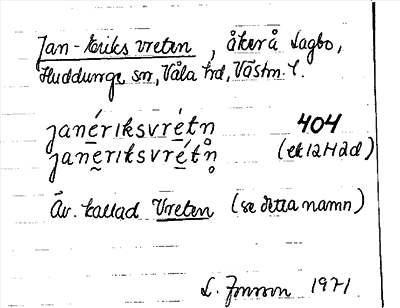 Jan-Eriks vreten, åker å Lagbo,
Huddunge sn, Våla hd, Västm. l.
janériksvrétn̥ 404
janḛ̀riksvrét̰n̥ (ek 12H2d)
Äv. kallad Vreten (se detta namn)
L. Jonsson 1971